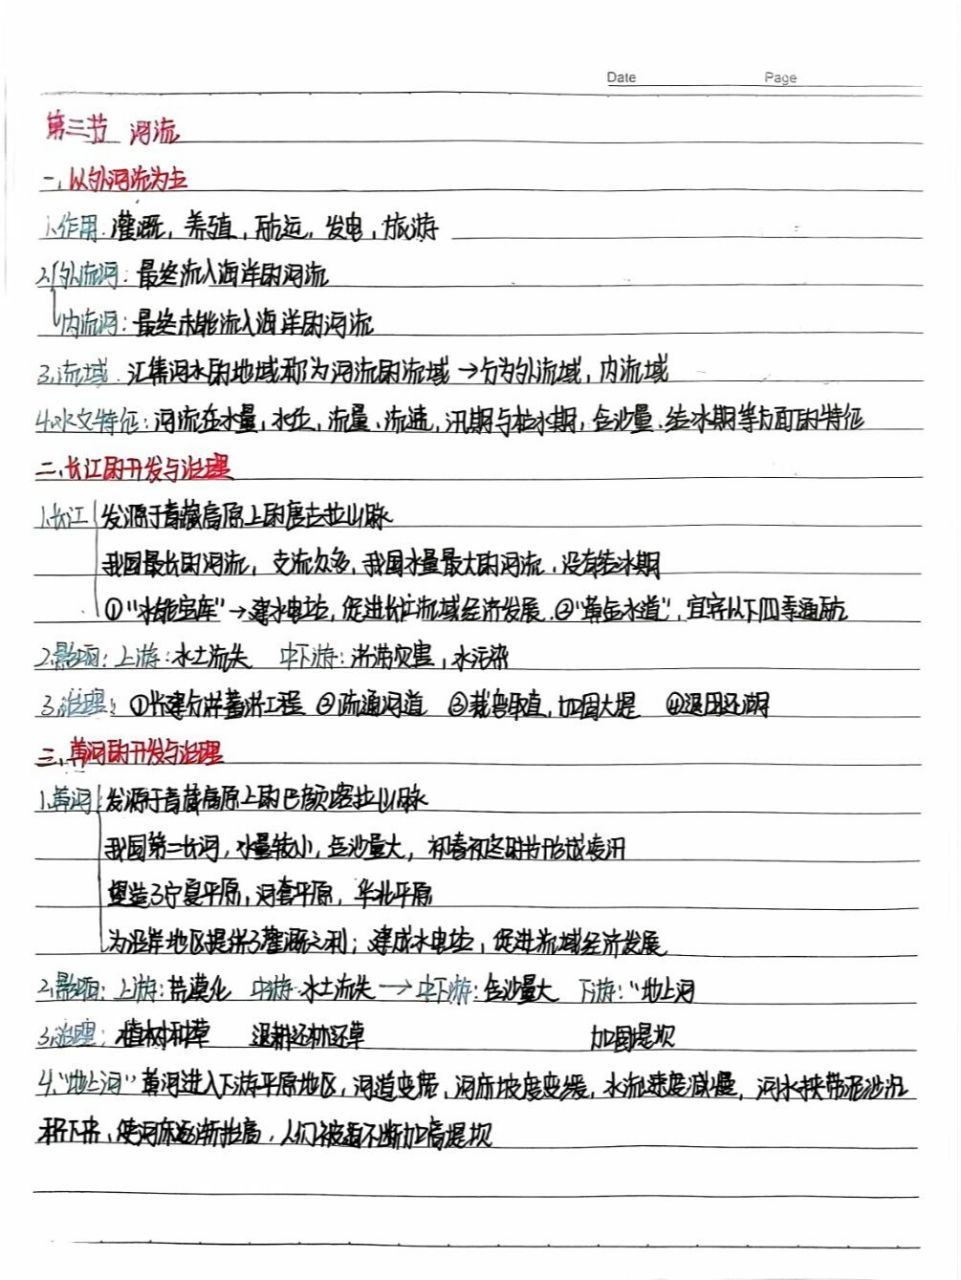 Date Page
第三节 河流
一、以外河流为主
1.作用：灌溉，养殖，航运，发电，旅游
2.外流河：最终流入海洋的河流
内流河：最终未能流入海洋的河流
3.流域：汇集河水的地域称为河流的流域→分为外流域，内流域
4.水文特征：河流在水量，水位，流量，流速，汛期与枯水期，含沙量，结冰期等方面的特征
二、长江的开发与治理
1.长江 发源于青藏高原上的唐古拉山脉
我国最长的河流，支流众多，我国水量最大的河流，没有结冰期
①“水能宝库”→建水电站，促进长江流域经济发展，②“黄金水道”，宜宾以下四季通航
2.影响：上游：水土流失 中下游：洪涝灾害，水污染
3.治理：①修建分洪蓄洪工程 ②疏通河道 ③裁弯取直，加固大堤 ④退田还湖
三、黄河的开发与治理
1.黄河 发源于青藏高原上的巴颜喀拉山脉
我国第二长河，水量较小，含沙量大，初春初冬时节形成凌汛
塑造了宁夏平原，河套平原，华北平原
为沿岸地区提供了灌溉之利；建成水电站，促进流域经济发展
2.影响：上游：荒漠化 中游：水土流失→中下游：含沙量大 下游：“地上河
3.治理：植树种草 退耕还林还草 加固堤坝
4.“地上河”黄河进入下游平原地区，河道变宽，河床坡度变缓，水流速度减慢，河水挟带泥沙沉
积下来，使河床逐渐抬高，人们被迫不断加高堤坝